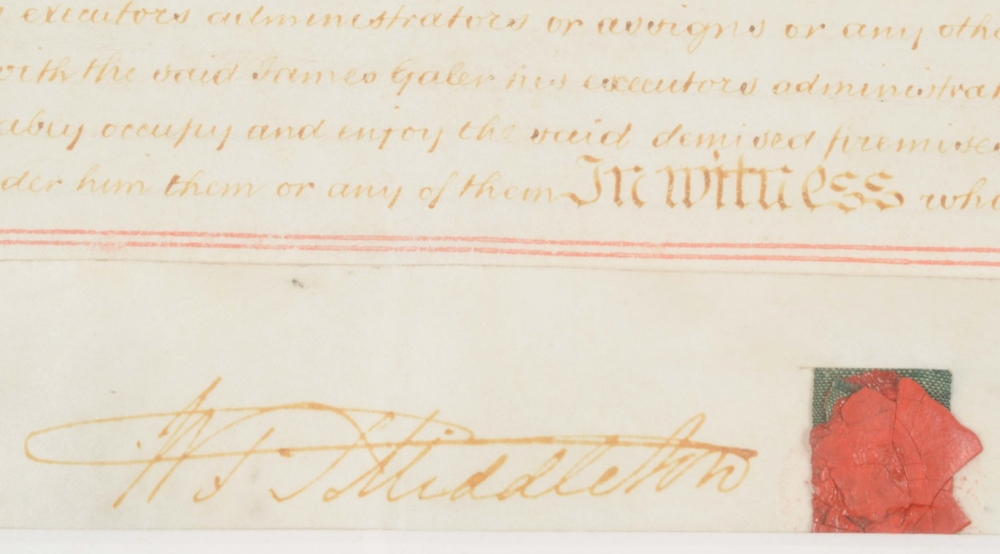 executors administrators or assigns or any othe
with the said James Galer his executors administrat
ably occupy and enjoy the said demised premises
der him them or any of them In witness whe
W F Middleton